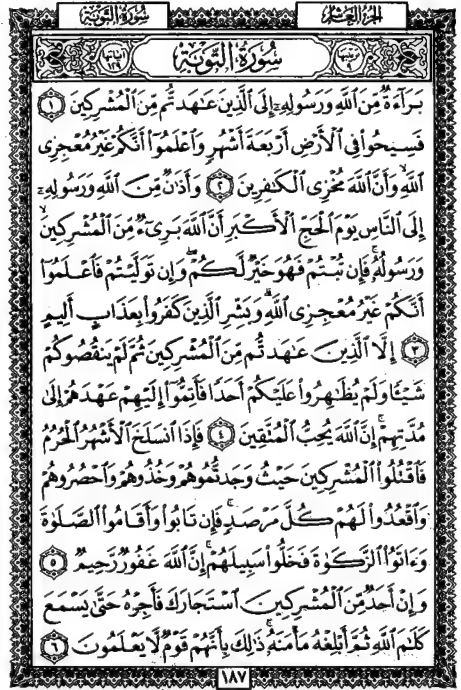 سُورَةُ التَّوْبَةِ
الجُزءُ العَاشِرُ
سُورَةُ التَّوْبَةِ
بَرَآءَةٌ مِّنَ ٱللَّهِ وَرَسُولِهِۦٓ إِلَى ٱلَّذِينَ عَٰهَدتُّم مِّنَ ٱلْمُشْرِكِينَ ١
فَسِيحُوا۟ فِى ٱلْأَرْضِ أَرْبَعَةَ أَشْهُرٍ وَٱعْلَمُوٓا۟ أَنَّكُمْ غَيْرُ مُعْجِزِى
ٱللَّهِ ۙ وَأَنَّ ٱللَّهَ مُخْزِى ٱلْكَٰفِرِينَ ٢ وَأَذَٰنٌ مِّنَ ٱللَّهِ وَرَسُولِهِۦٓ
إِلَى ٱلنَّاسِ يَوْمَ ٱلْحَجِّ ٱلْأَكْبَرِ أَنَّ ٱللَّهَ بَرِىٓءٌ مِّنَ ٱلْمُشْرِكِينَ ۙ
وَرَسُولُهُۥ ۚ فَإِن تُبْتُمْ فَهُوَ خَيْرٌ لَّكُمْ ۖ وَإِن تَوَلَّيْتُمْ فَٱعْلَمُوٓا۟
أَنَّكُمْ غَيْرُ مُعْجِزِى ٱللَّهِ ۗ وَبَشِّرِ ٱلَّذِينَ كَفَرُوا۟ بِعَذَابٍ أَلِيمٍ
٣ إِلَّا ٱلَّذِينَ عَٰهَدتُّم مِّنَ ٱلْمُشْرِكِينَ ثُمَّ لَمْ يَنقُصُوكُمْ
شَيْـًٔا وَلَمْ يُظَٰهِرُوا۟ عَلَيْكُمْ أَحَدًا فَأَتِمُّوٓا۟ إِلَيْهِمْ عَهْدَهُمْ إِلَىٰ
مُدَّتِهِمْ ۚ إِنَّ ٱللَّهَ يُحِبُّ ٱلْمُتَّقِينَ ٤ فَإِذَا ٱنسَلَخَ ٱلْأَشْهُرُ ٱلْحُرُمُ
فَٱقْتُلُوا۟ ٱلْمُشْرِكِينَ حَيْثُ وَجَدتُّمُوهُمْ وَخُذُوهُمْ وَٱحْصُرُوهُمْ
وَٱقْعُدُوا۟ لَهُمْ كُلَّ مَرْصَدٍ ۚ فَإِن تَابُوا۟ وَأَقَامُوا۟ ٱلصَّلَوٰةَ
وَءَاتَوُا۟ ٱلزَّكَوٰةَ فَخَلُّوا۟ سَبِيلَهُمْ ۚ إِنَّ ٱللَّهَ غَفُورٌ رَّحِيمٌ ٥
وَإِنْ أَحَدٌ مِّنَ ٱلْمُشْرِكِينَ ٱسْتَجَارَكَ فَأَجِرْهُ حَتَّىٰ يَسْمَعَ
كَلَٰمَ ٱللَّهِ ثُمَّ أَبْلِغْهُ مَأْمَنَهُۥ ۚ ذَٰلِكَ بِأَنَّهُمْ قَوْمٌ لَّا يَعْلَمُونَ ٦
١٨٧